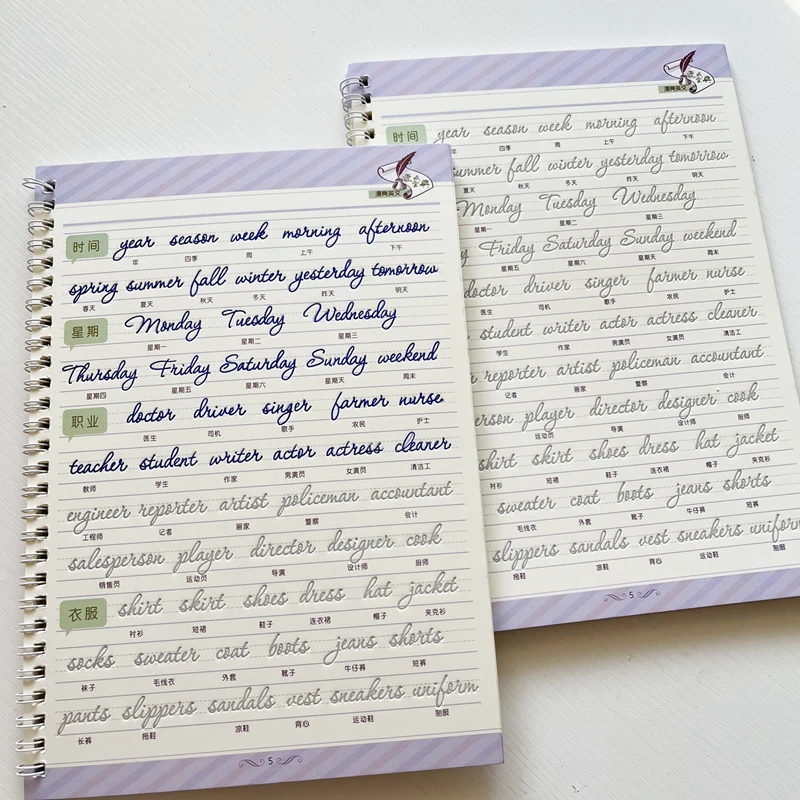 时间 year season week morning afternoon
年 四季 周 上午 下午
spring summer fall winter yesterday tomorrow
春天 夏天 秋天 冬天 昨天 明天
星期 Monday Tuesday Wednesday
星期一 星期二 星期三
Thursday Friday Saturday Sunday weekend
星期四 星期五 星期六 星期天 周末
职业 doctor driver singer farmer nurse
医生 司机 歌手 农民 护士
teacher student writer actor actress cleaner
教师 学生 作家 男演员 女演员 清洁工
engineer reporter artist policeman accountant
工程师 记者 画家 警察 会计
salesperson player director designer cook
销售员 运动员 导演 设计师 厨师
衣服 shirt skirt shoes dress hat jacket
衬衫 短裙 鞋子 连衣裙 帽子 夹克衫
socks sweater coat boots jeans shorts
袜子 毛线衣 外套 靴子 牛仔裤 短裤
pants slippers sandals vest sneakers uniform
长裤 拖鞋 凉鞋 背心 运动鞋 制服
5
时间 year season week morning afternoon
年 四季 周 上午 下午
summer fall winter yesterday tomorrow
夏天 秋天 冬天 昨天 明天
Monday Tuesday Wednesday
星期一 星期二 星期三
Friday Saturday Sunday weekend
星期五 星期六 星期天 周末
doctor driver singer farmer nurse
医生 司机 歌手 农民 护士
student writer actor actress cleaner
学生 作家 男演员 女演员 清洁工
reporter artist policeman accountant
记者 画家 警察 会计
person player director designer cook
运动员 导演 设计师 厨师
shirt skirt shoes dress hat jacket
衬衫 短裙 鞋子 连衣裙 帽子 夹克衫
sweater coat boots jeans shorts
毛线衣 外套 靴子 牛仔裤 短裤
slippers sandals vest sneakers uniform
拖鞋 凉鞋 背心 运动鞋 制服
5